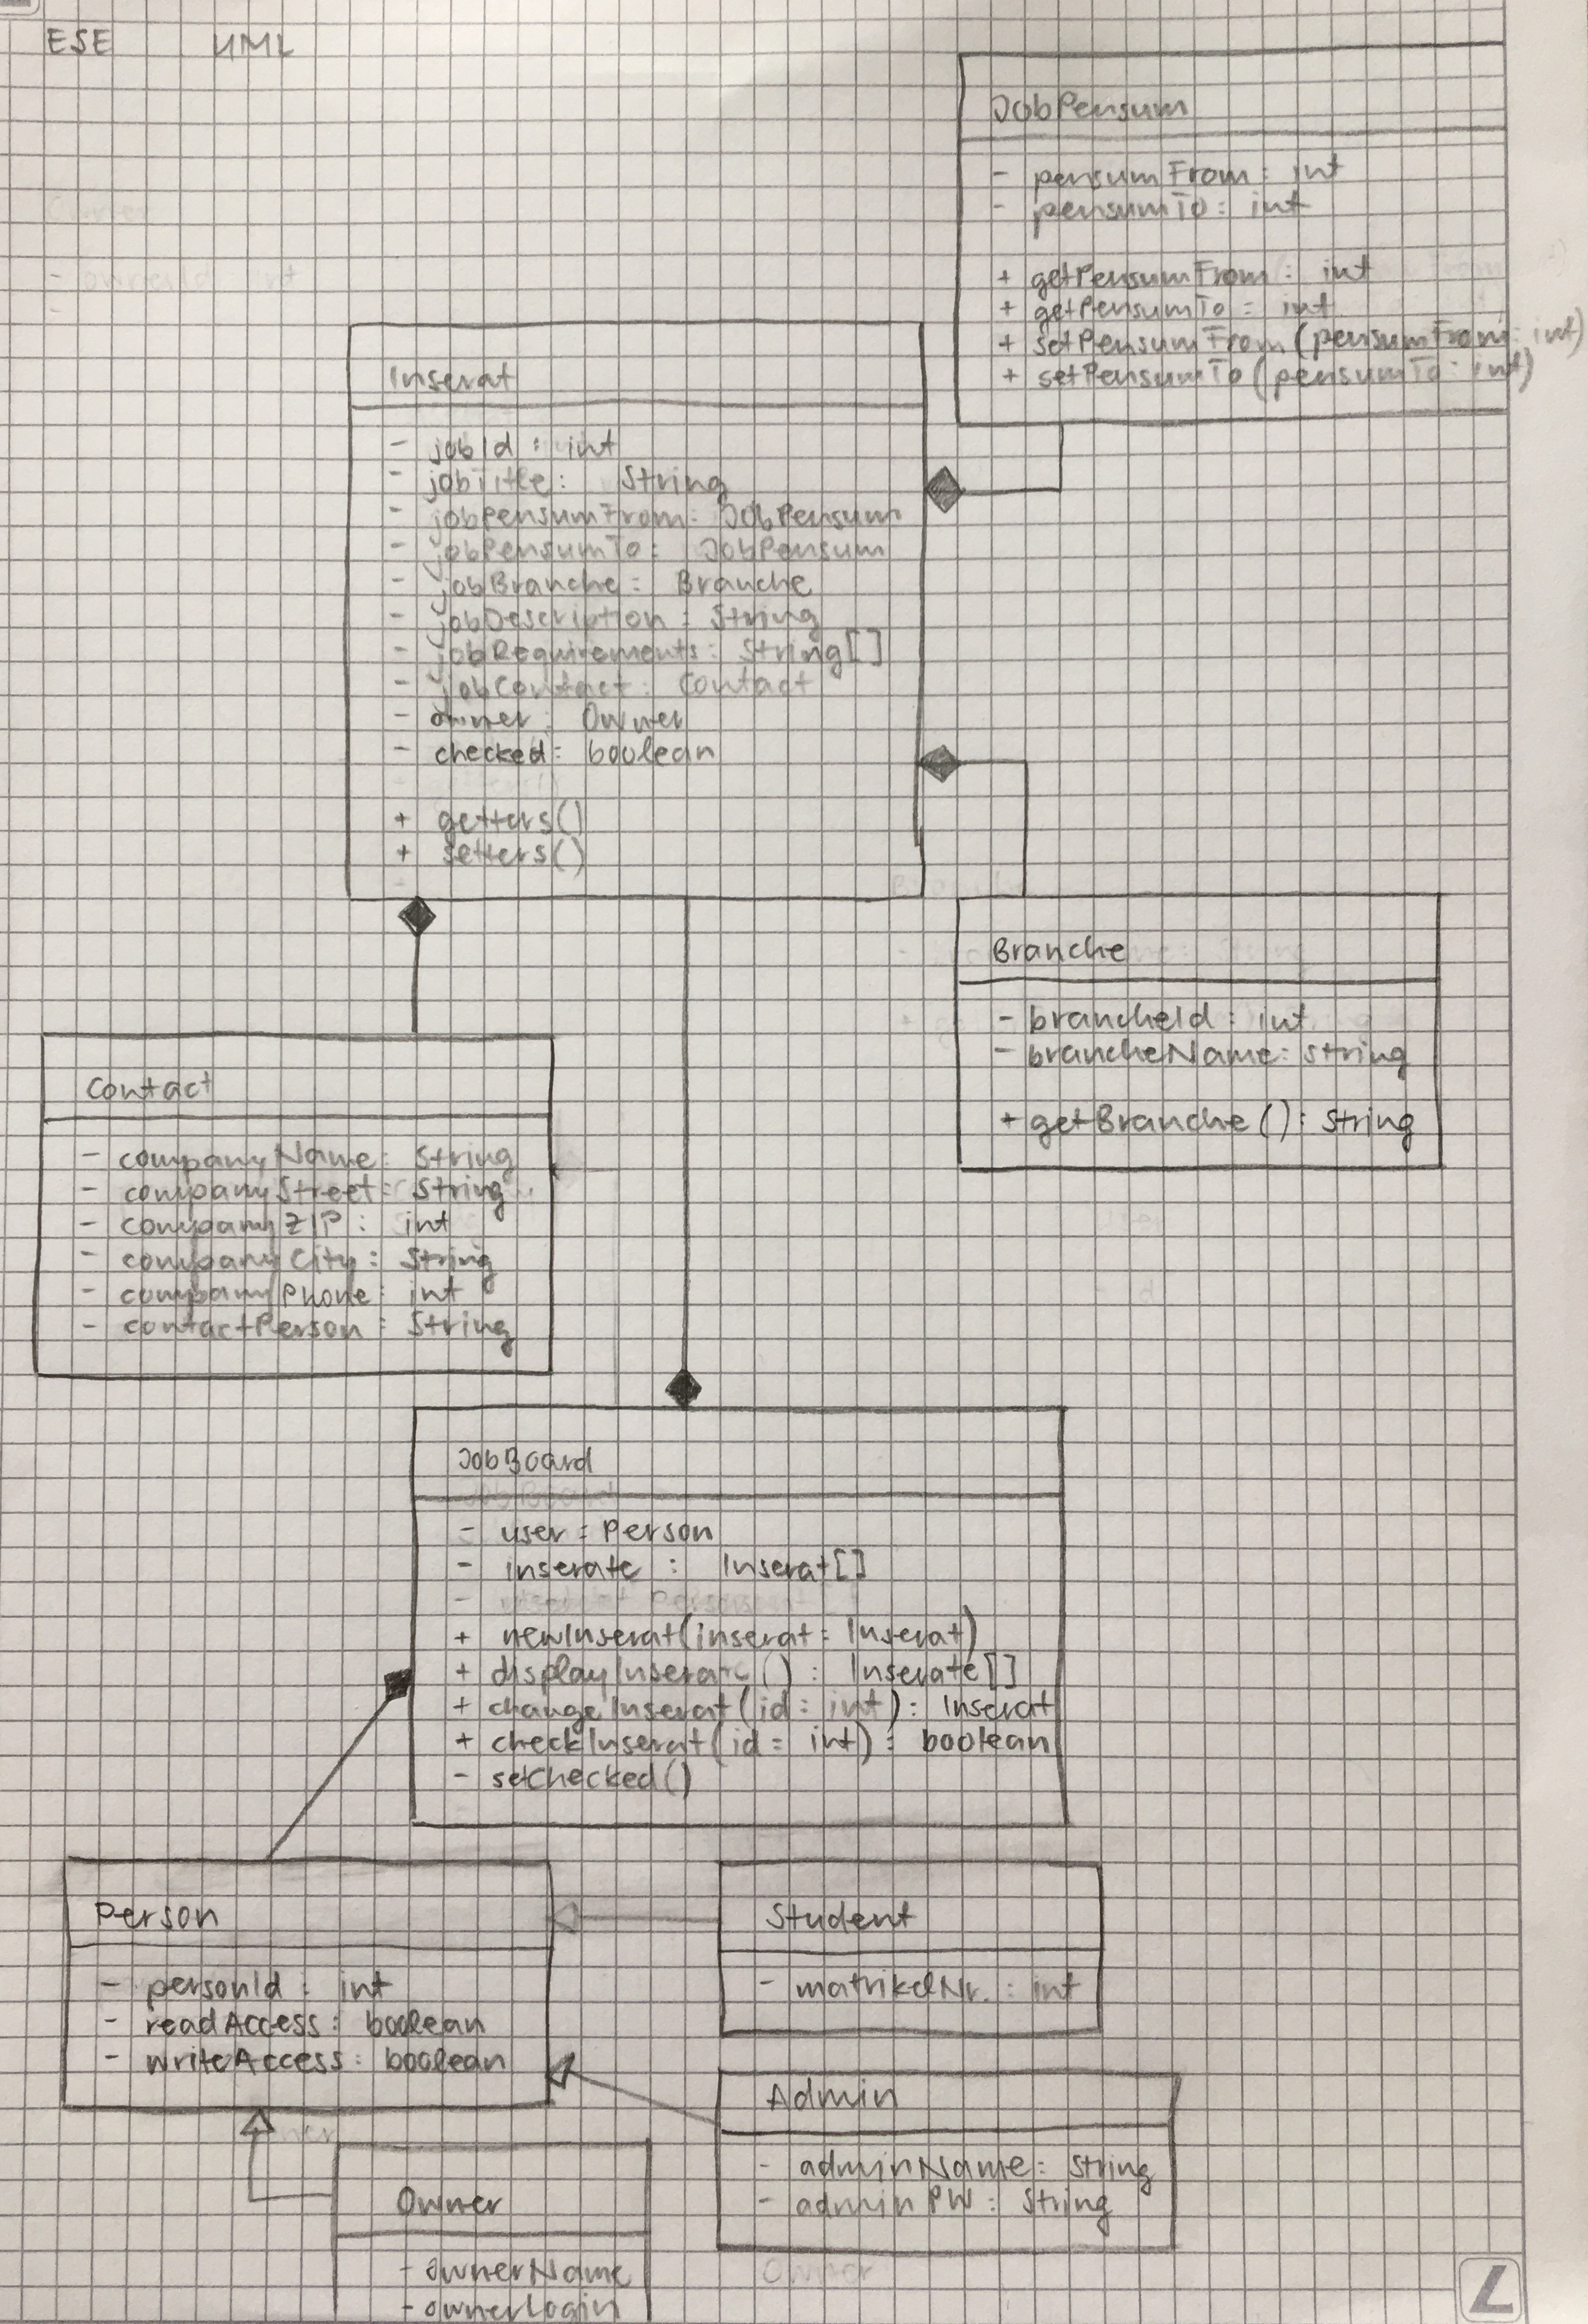 ESE UML
JobPensum
- pensumFrom: int
- pensumTo: int
+ getPensumFrom: int
+ getPensumTo: int
+ setPensumFrom(pensumFrom: int)
+ setPensumTo(pensumTo: int)
Inserat
- jobId: int
- jobTitle: String
- jobPensumFrom: JobPensum
- jobPensumTo: JobPensum
- jobBranche: Branche
- jobDescription: String
- jobRequirements: String[]
- jobContact: Contact
- owner: Owner
- checked: boolean
+ getters()
+ setters()
Branche
- brancheId: int
- brancheName: String
+ getBranche(): String
Contact
- companyName: String
- companyStreet: String
- companyZIP: int
- companyCity: String
- companyPhone: int
- contactPerson: String
JobBoard
- user: Person
- inserate: Inserat[]
+ newInserat(inserat: Inserat)
+ displayInserate(): Inserate[]
+ changeInserat(id: int): Inserat
+ checkInserat(id: int): boolean
- setChecked()
Person
- personId: int
- readAccess: boolean
- writeAccess: boolean
Student
- matrikelNr.: int
Admin
- adminName: String
- adminPW: String
Owner
- ownerName
- ownerLogin
L